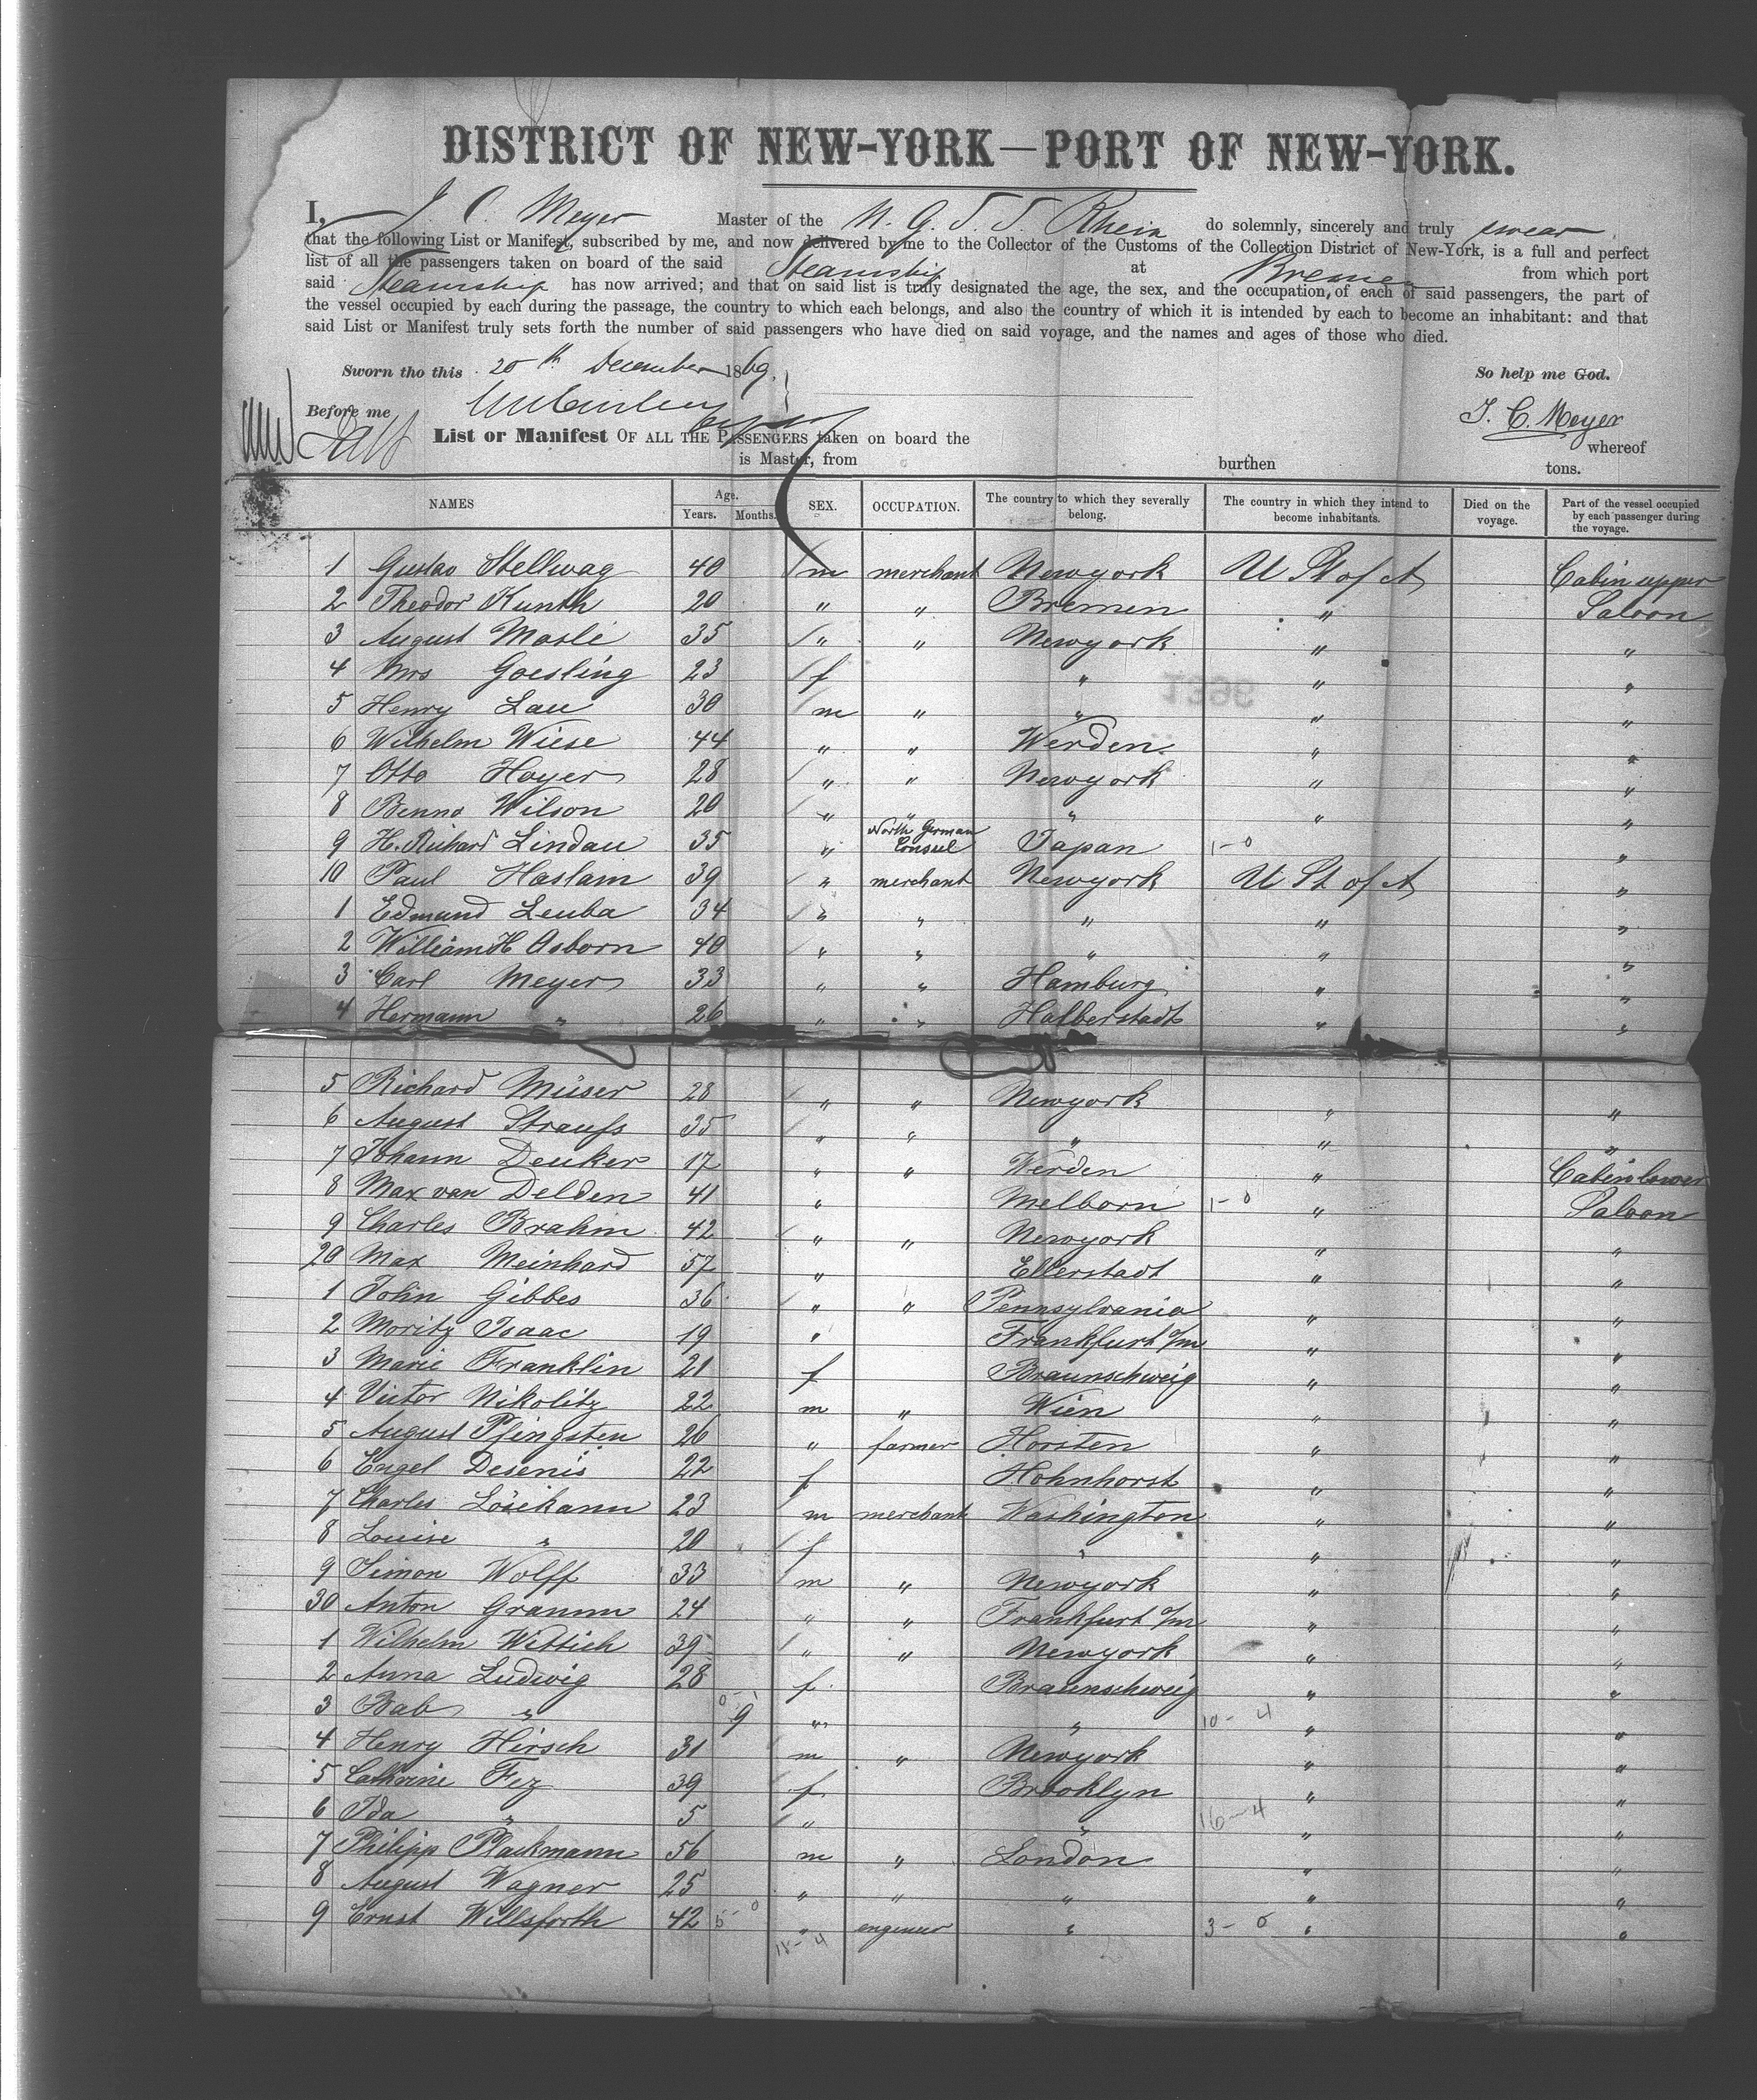 DISTRICT OF NEW-YORK—PORT OF NEW-YORK.
I, J. C. Meyer Master of the N. G. S. S. Rhein do solemnly, sincerely and truly swear
that the following List or Manifest, subscribed by me, and now delivered by me to the Collector of the Customs of the Collection District of New-York, is a full and perfect
list of all the passengers taken on board of the said Steamship at Bremen from which port
said Steamship has now arrived; and that on said list is truly designated the age, the sex, and the occupation, of each of said passengers, the part of
the vessel occupied by each during the passage, the country to which each belongs, and also the country of which it is intended by each to become an inhabitant: and that
said List or Manifest truly sets forth the number of said passengers who have died on said voyage, and the names and ages of those who died.
Sworn tho this 20th December 1869. So help me God.
Before me J. C. Meyer
List or Manifest OF ALL THE PASSENGERS taken on board the whereof
is Master, from burthen tons.
NAMES Age. Years. Months. SEX. OCCUPATION. The country to which they severally belong. The country in which they intend to become inhabitants. Died on the voyage. Part of the vessel occupied by each passenger during the voyage.
1 Gustav Stellwag 40 m merchant Newyork U St of A Cabin upper
2 Theodor Kunth 20 " " Bremen " Saloon
3 August Masle 35 " " Newyork " "
4 Mrs Goesling 23 f " " "
5 Henry Lau 30 m " " " "
6 Wilhelm Wiese 44 " " Werden " "
7 Otto Hoyer 28 " " Newyork " "
8 Benno Wilson 20 " " " " "
9 H. Richard Lindau 35 " North German Consul Japan 1-0 "
10 Paul Haslam 39 " merchant Newyork U St of A "
1 Edmund Leuba 34 " " " " "
2 William H Osborn 40 " " " " "
3 Carl Meyer 33 " " Hamburg " "
4 Hermann " 26 " " Halberstadt " "
5 Richard Müser 28 " " Newyork " "
6 August Strauss 35 " " " " "
7 Johann Deuker 17 " " Werden " Cabin lower
8 Max van Delden 41 " Melborn 1-0 " Saloon
9 Charles Brahm 42 " " Newyork " "
20 Max Meinhard 57 " Ellerstadt " "
1 John Gibbes 36 " " Pennsylvania " "
2 Moritz Isaac 19 " Frankfurt a/m " "
3 Marie Franklin 21 f Braunschweig " "
4 Victor Nikolitz 22 m " Wien " "
5 August Pfingsten 26 " farmer Horsten " "
6 Engel Desenis 22 f Hohnhorst " "
7 Charles Lösekann 23 m merchant Washington " "
8 Louise " 20 f " " "
9 Simon Wolff 33 m " Newyork " "
30 Anton Gramm 24 " " Frankfurt a/m " "
1 Wilhelm Wittich 39 " " Newyork " "
2 Anna Ludwig 28 f Braunschweig " "
3 Bab " 9 " " 10-4 " "
4 Henry Hirsch 31 m " Newyork " "
5 Cathrine Fez 39 f Brooklyn " "
6 Ida " 5 " " 16-4 " "
7 Philipp Plackmann 56 m " London " "
8 August Wagner 25 " " " " "
9 Ernst Willsforth 42 5-0 " engeneer " 3-0 " "
18-4